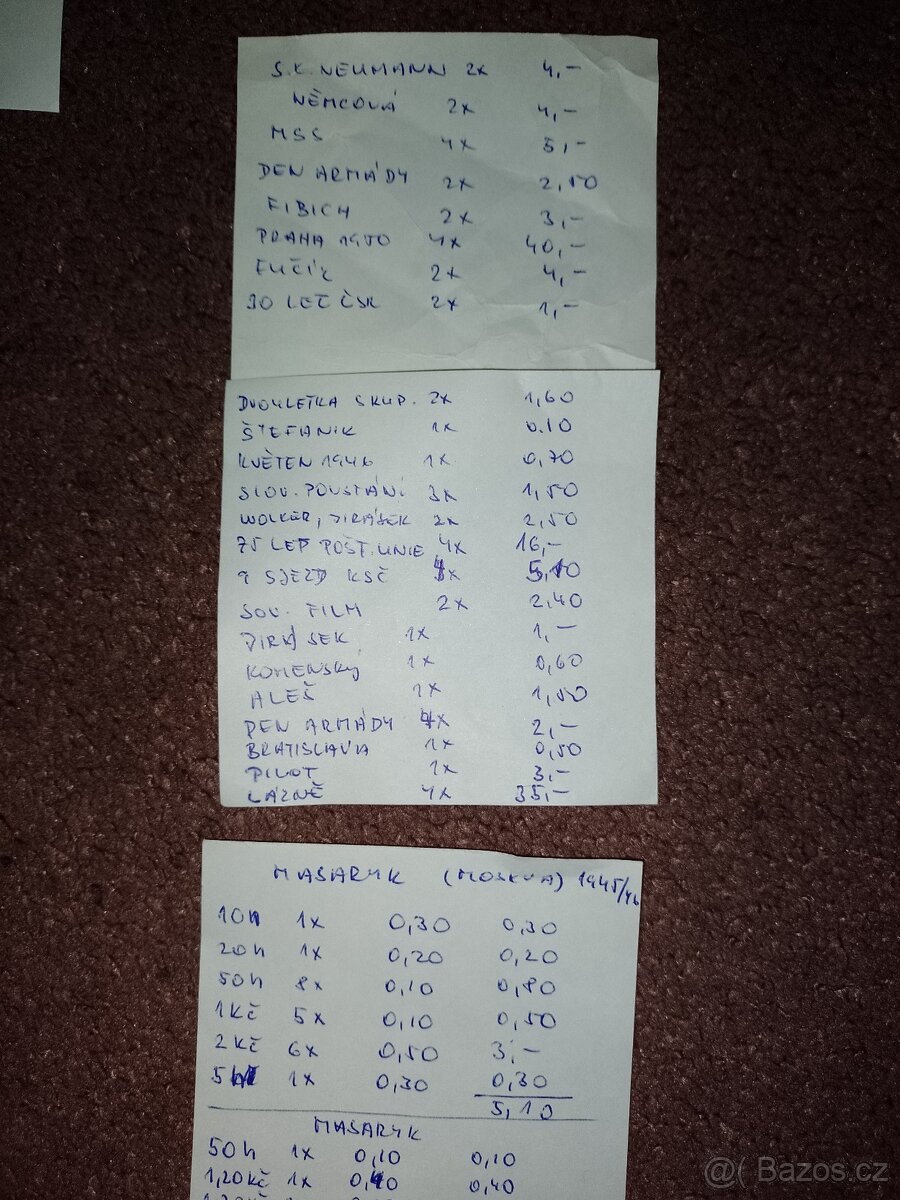 S.K. NEUMANN 2x 4,-
NĚMCOVÁ 2x 4,-
MSS 4x 5,-
DEN ARMÁDY 2x 2,50
FIBICH 2x 3,-
PRAHA 1950 4x 40,-
FUČÍK 2x 4,-
30 LET ČSR 2x 1,-
DVOULETKA SKUP. 2x 1,60
ŠTEFANIK 1x 0.10
KVĚTEN 1946 1x 0,70
SLOV. POVSTÁNÍ 3x 1,50
WOLKER, JIRÁSEK 2x 2,50
75 LET POŠT. UNIE 4x 16,-
9 SJEZD KSČ x 5,10
SOV. FILM 2x 2,40
JIRÁSEK 1x 1,-
KOMENSKÝ 1x 0,60
ALEŠ 1x 1,50
DEN ARMÁDY 4x 2,-
BRATISLAVA 1x 0,50
PILOT 1x 3,-
LÁZNĚ 4x 35,-
MASARYK (MOSKVA) 1945/46
10h 1x 0,30 0,30
20h 1x 0,20 0,20
50h 8x 0,10 0,80
1Kč 5x 0,10 0,50
2Kč 6x 0,50 3,-
5 1x 0,30 0,30
5,10
MASARYK
50h 1x 0,10 0,10
1,20Kč 1x 0,40 0,40
@( Bazos.cz